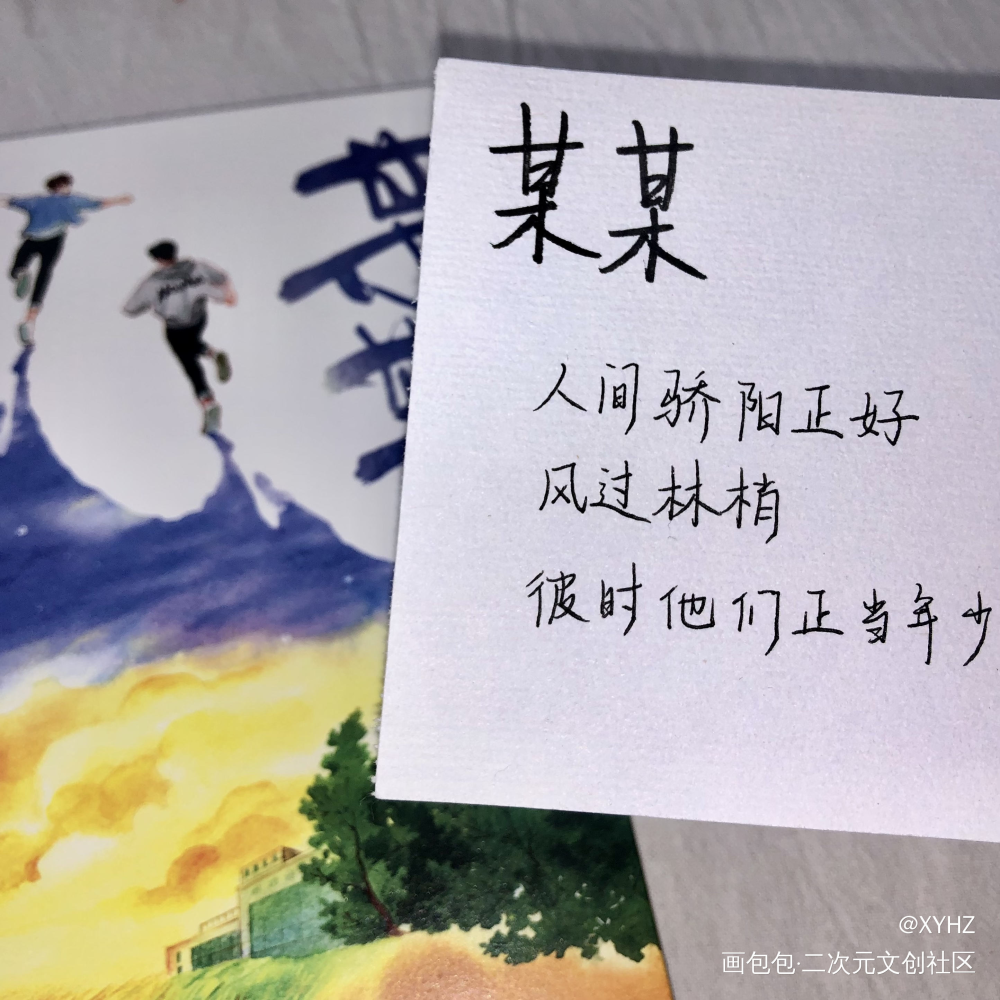 某某
某某
人间骄阳正好
风过林梢
彼时他们正当年少
@XYHZ
画包包·二次元文创社区